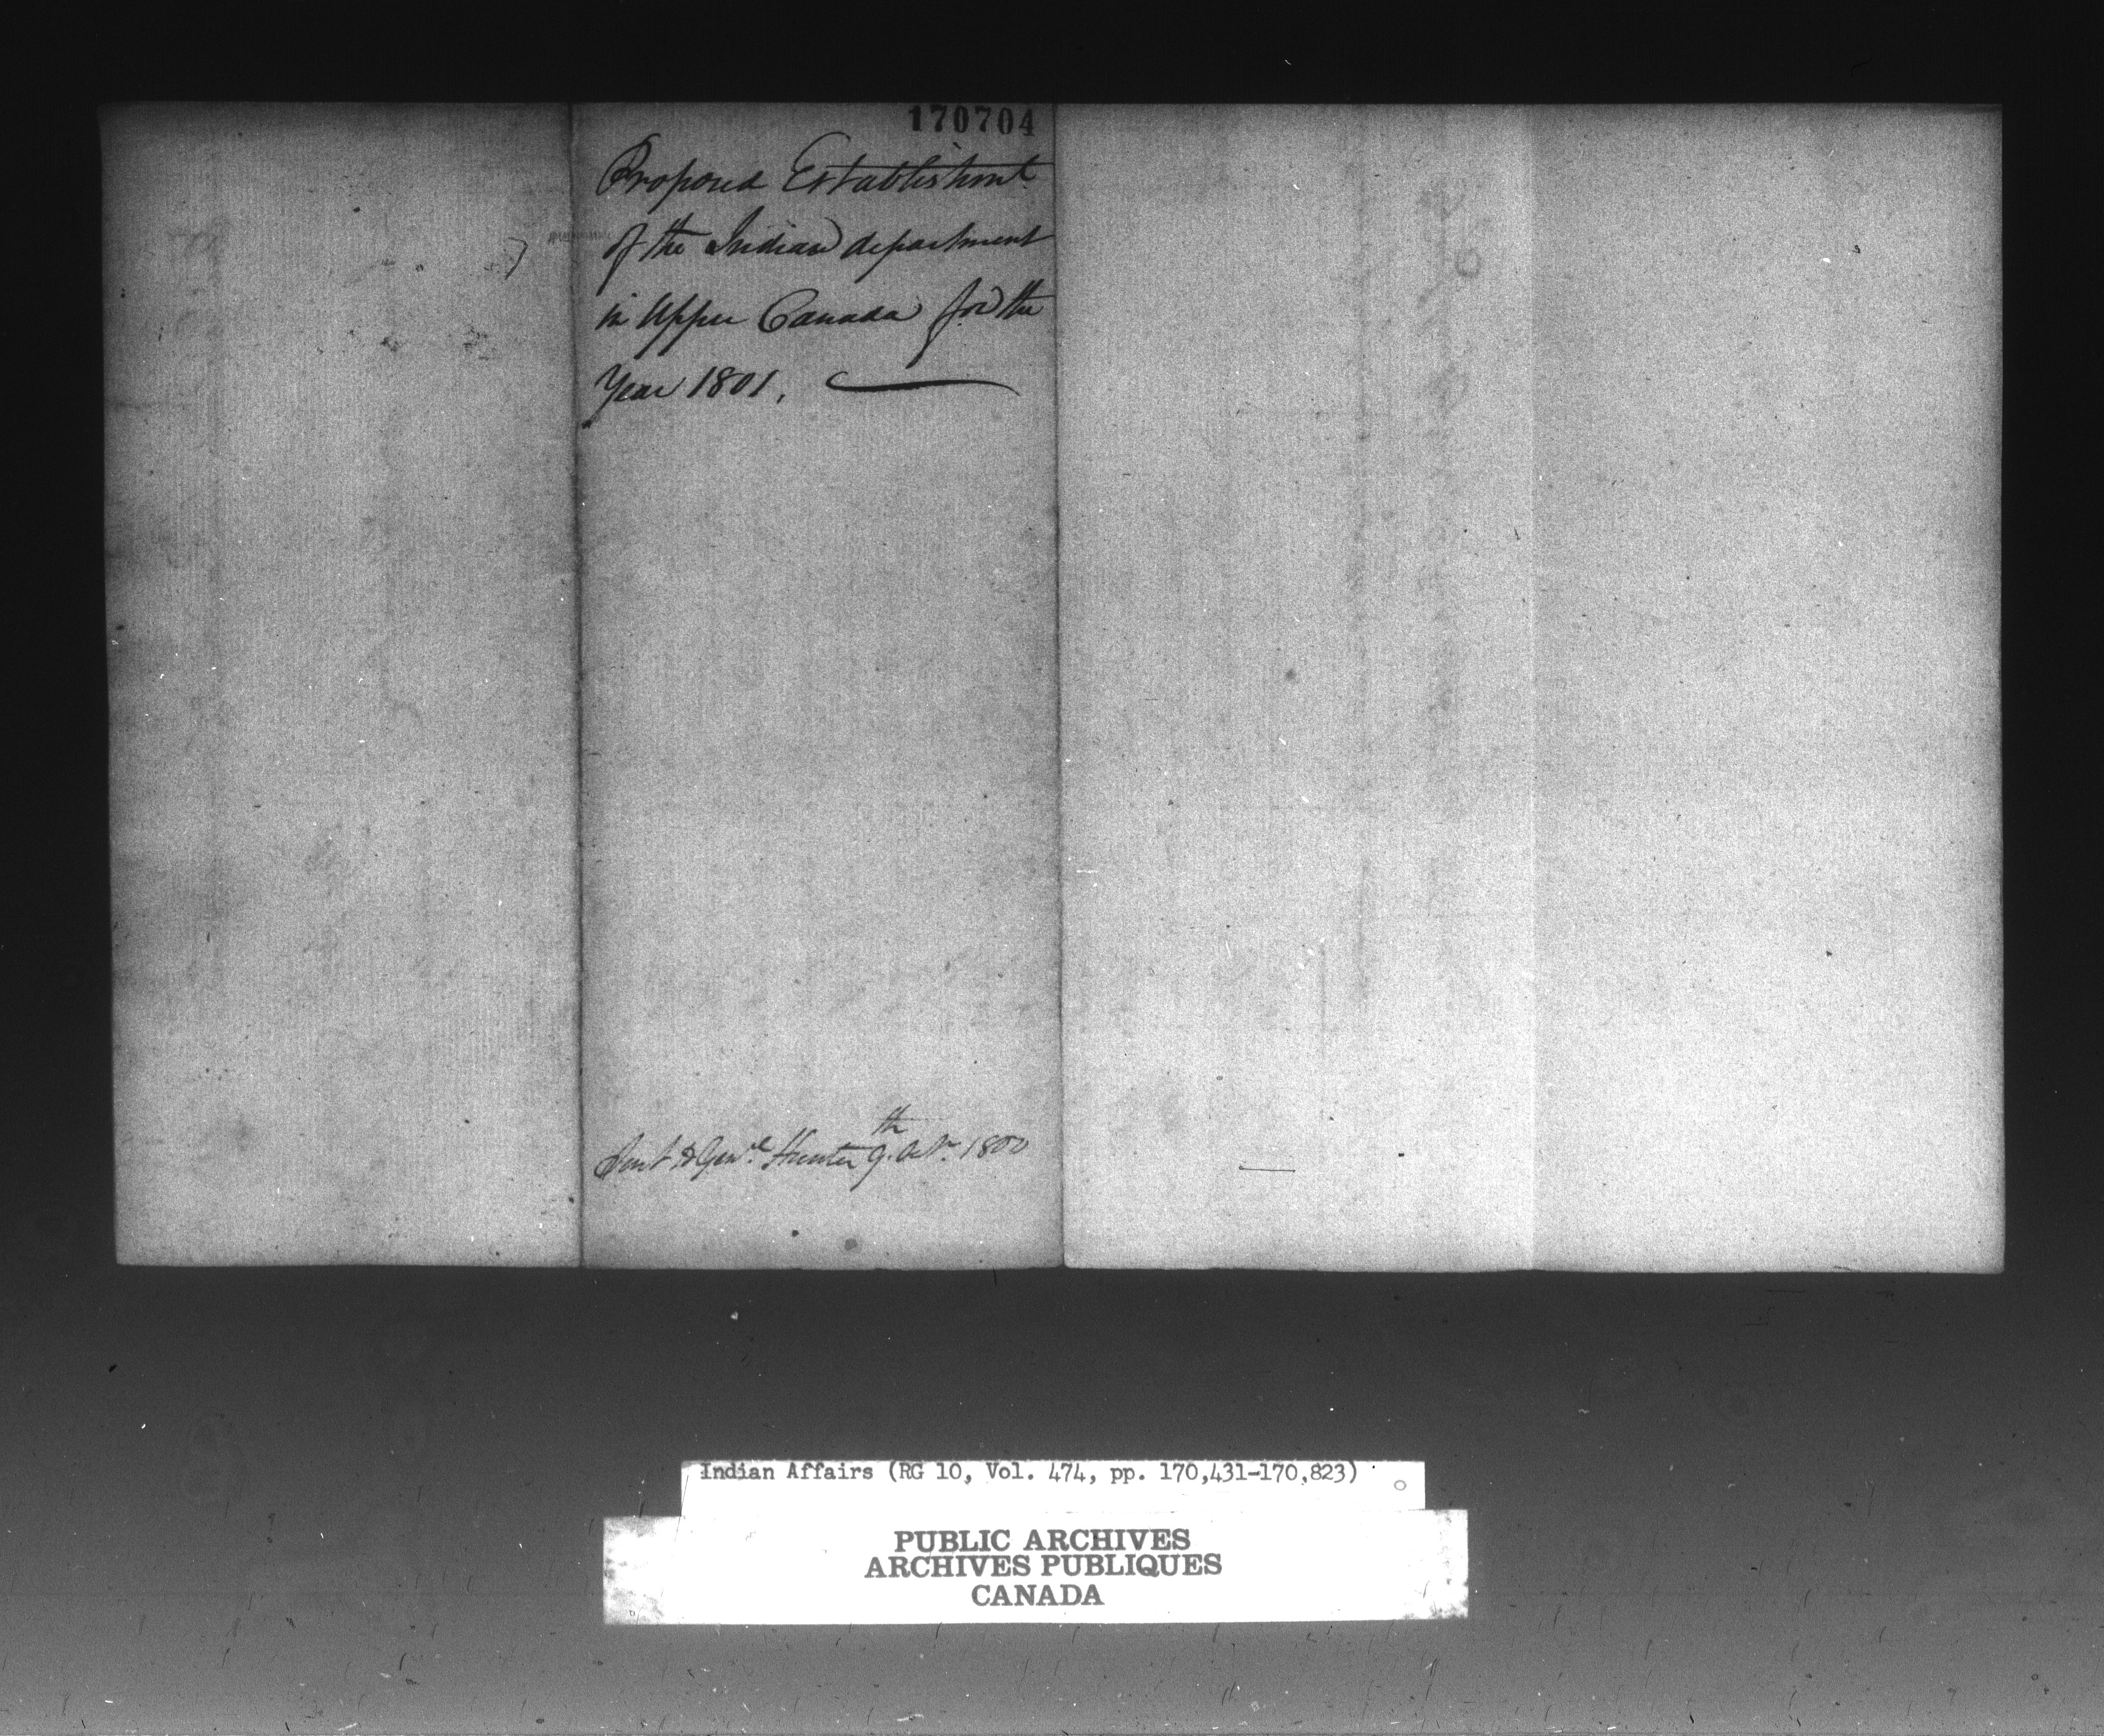 170704
Proposed Establishmt
of the Indian department
in Upper Canada for the
Year 1801.
Sent to Genl. Hunter 9th. Octr. 1800
Indian Affairs (RG 10, Vol. 474, pp. 170,431-170,823)
PUBLIC ARCHIVES
ARCHIVES PUBLIQUES
CANADA